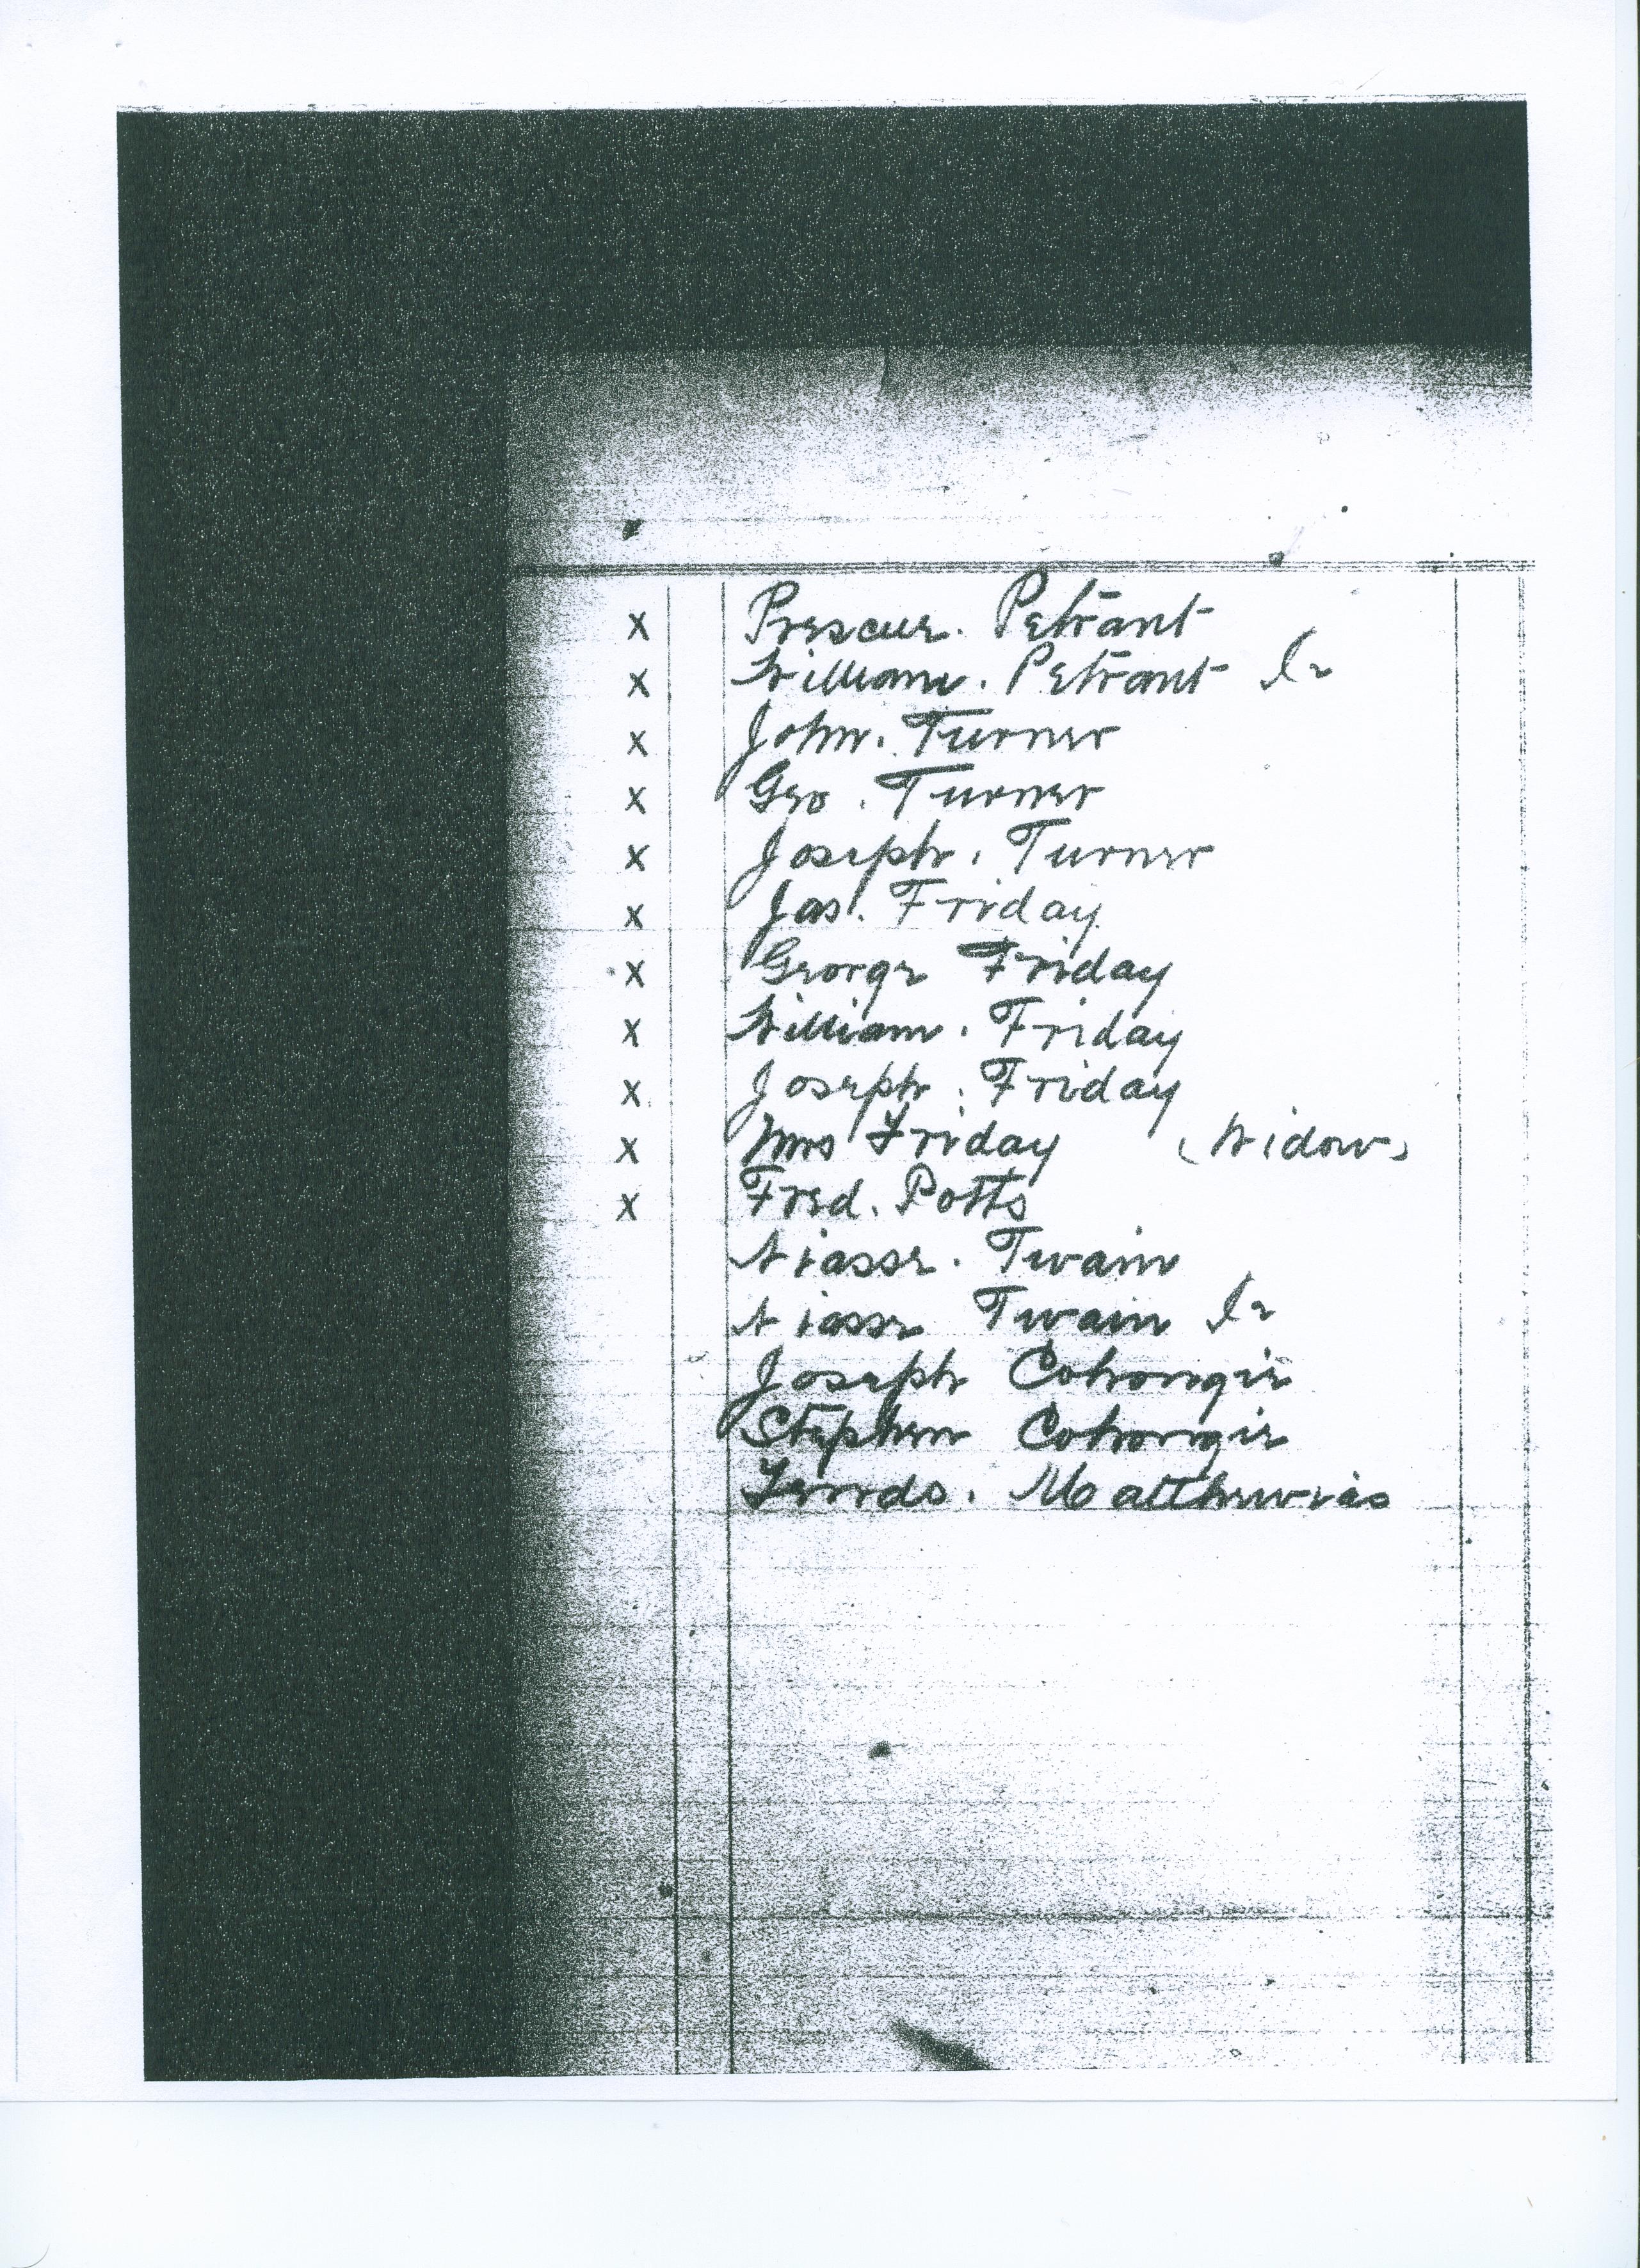 x Prescue. Petrant
x William. Petrant Jr
x John. Turner
x Geo. Turner
x Joseph. Turner
x Jas. Friday
x George Friday
x William. Friday
x Joseph. Friday
x Mrs Friday (Widow)
x Fred. Potts
Twain
Twain Jr
Joseph Cohongie
Stephen Cohongie